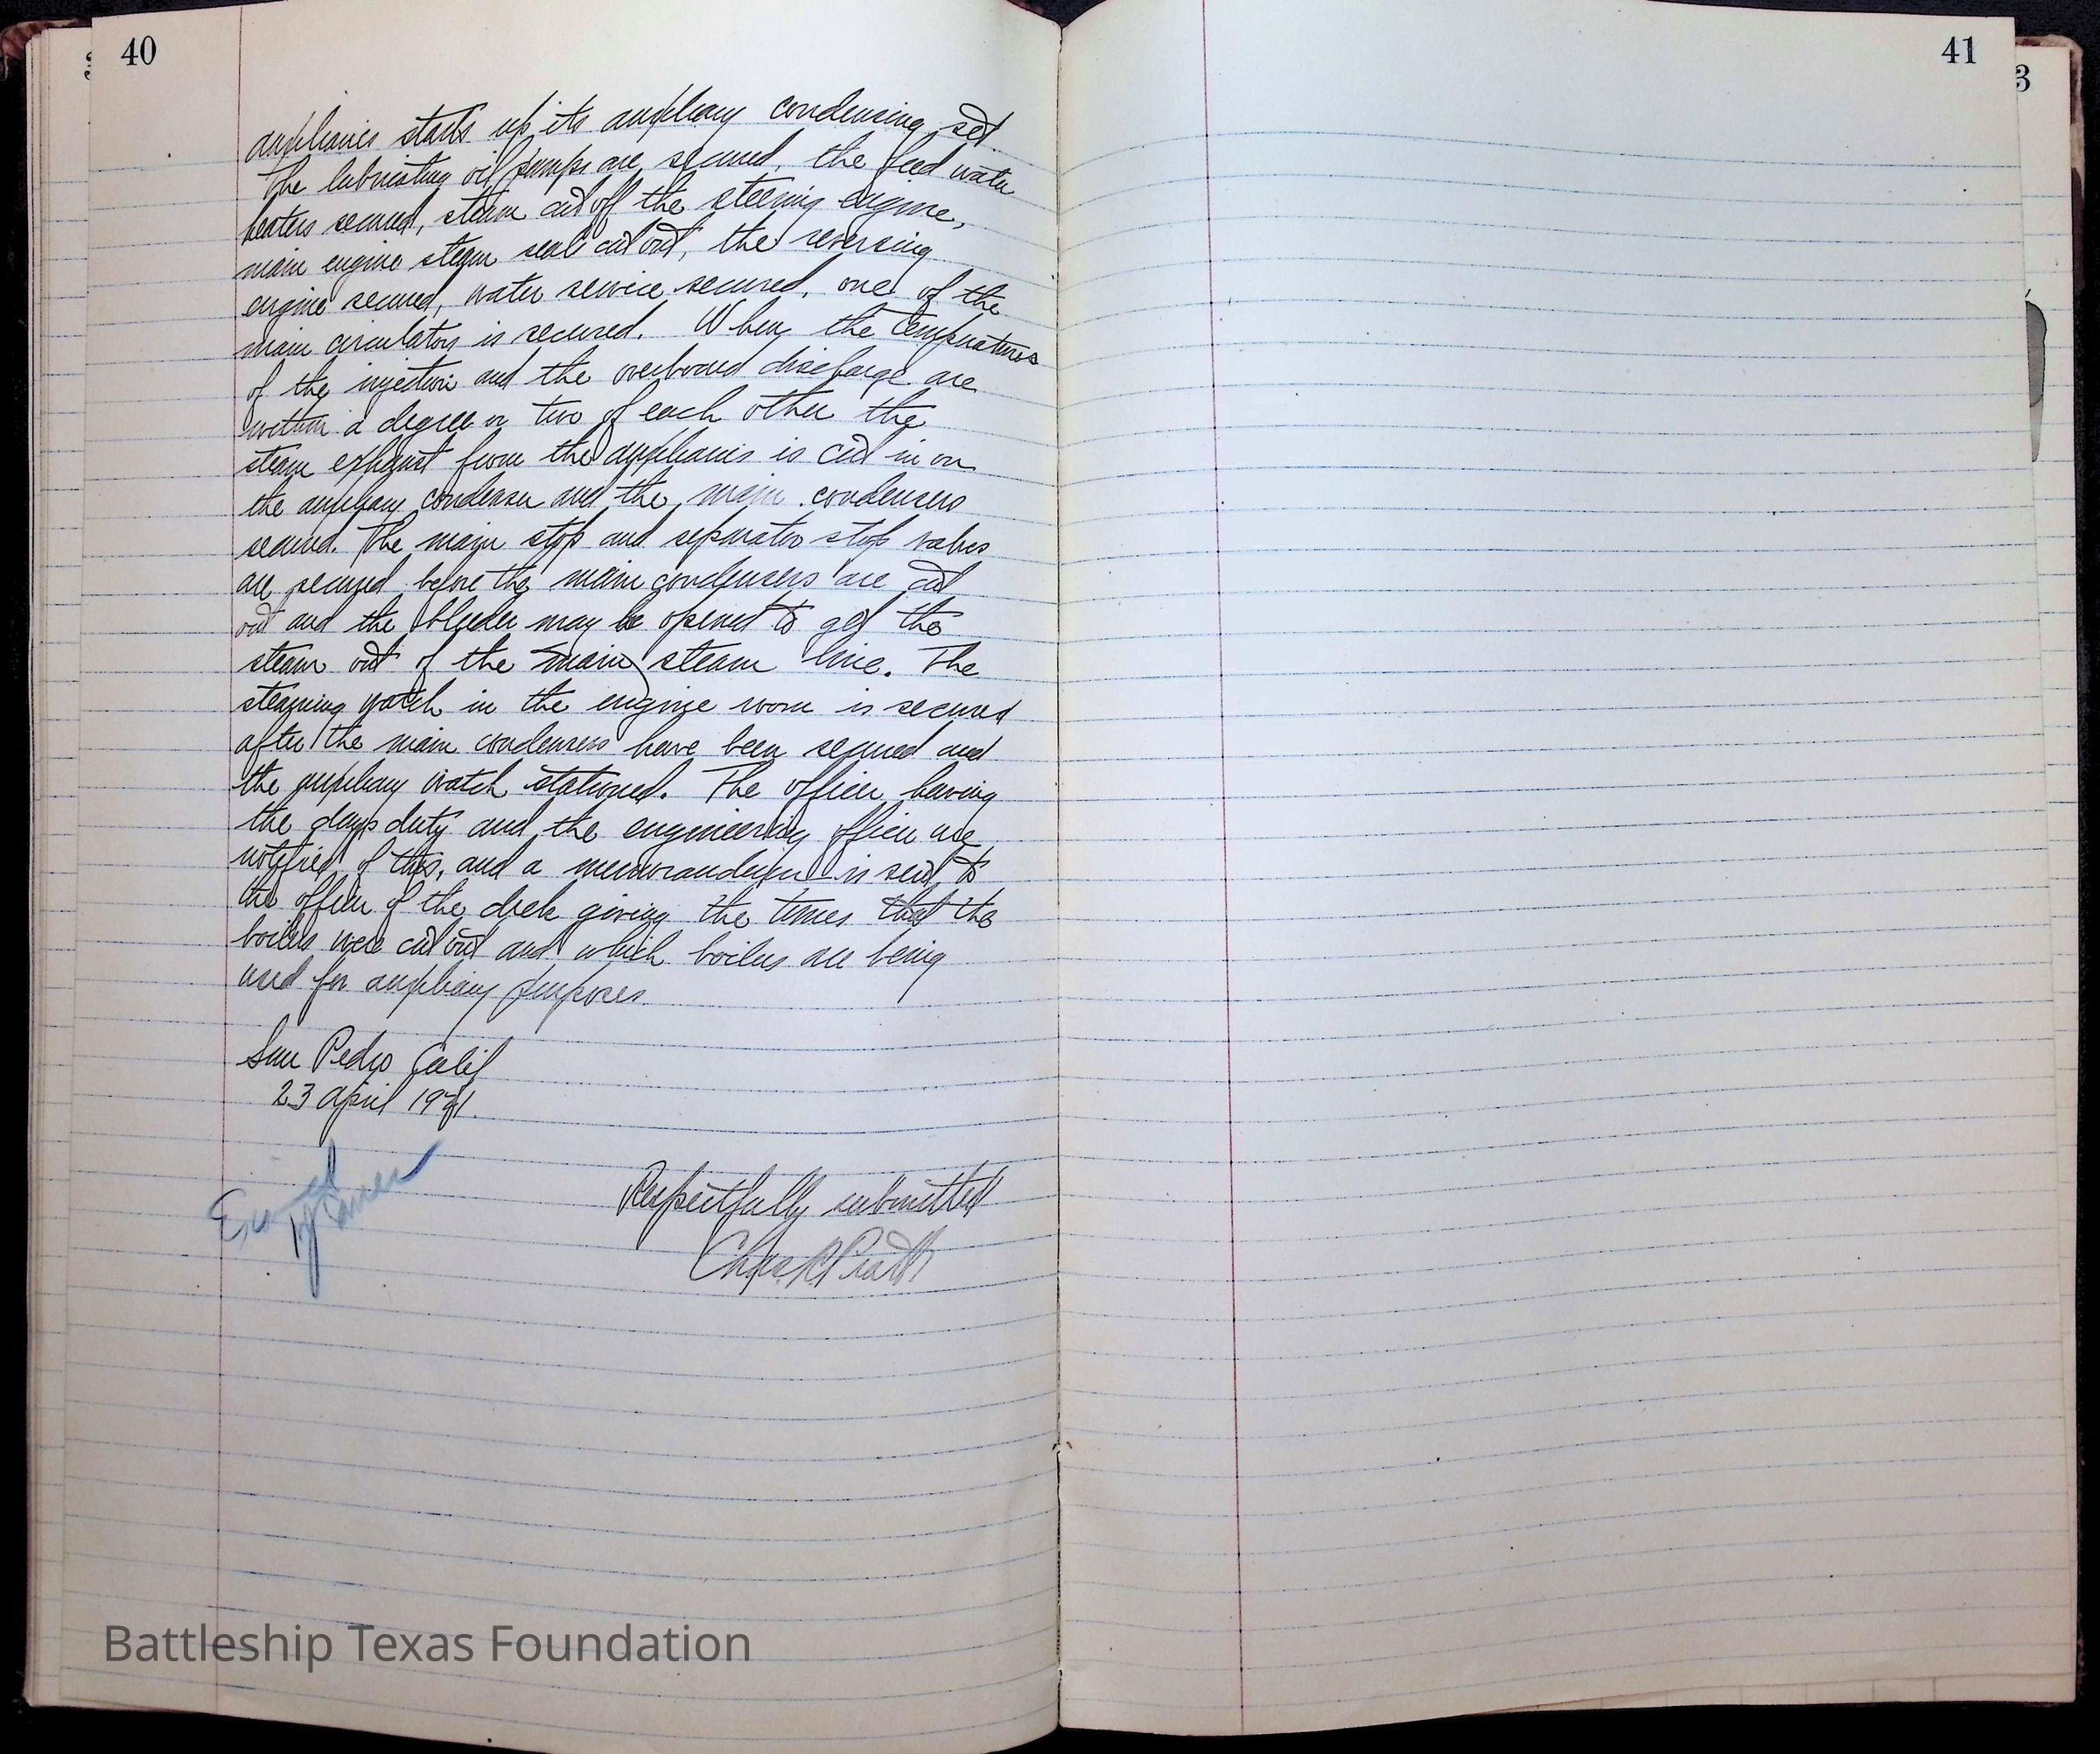 40
auxiliaries starts up its auxiliary condensing set.
The lubricating oil pumps are secured, the feed water
heaters secured, steam cut off the steering engine,
main engine steam seals cut out, the reversing
engine secured, water service secured, one of the
main circulators is secured. When the temperatures
of the injection and the overboard discharge are
within a degree or two of each other the
steam exhaust from the auxiliaries is cut in on
the auxiliary condenser and the main condensers
secured. The main stop and separator stop valves
are secured before the main condensers are cut
out and the bleeder may be opened to get the
steam out of the main steam line. The
steaming watch in the engine room is secured
after the main condensers have been secured and
the auxiliary watch stationed. The officer having
the days duty and the engineering officer are
notified of this, and a memorandum is sent to
the officer of the deck giving the times that the
boilers were cut out and which boilers are being
used for auxiliary purposes.
San Pedro Calif
23 April 1921.
Respectfully submitted
Chas R Pratt
41
3
Battleship Texas Foundation